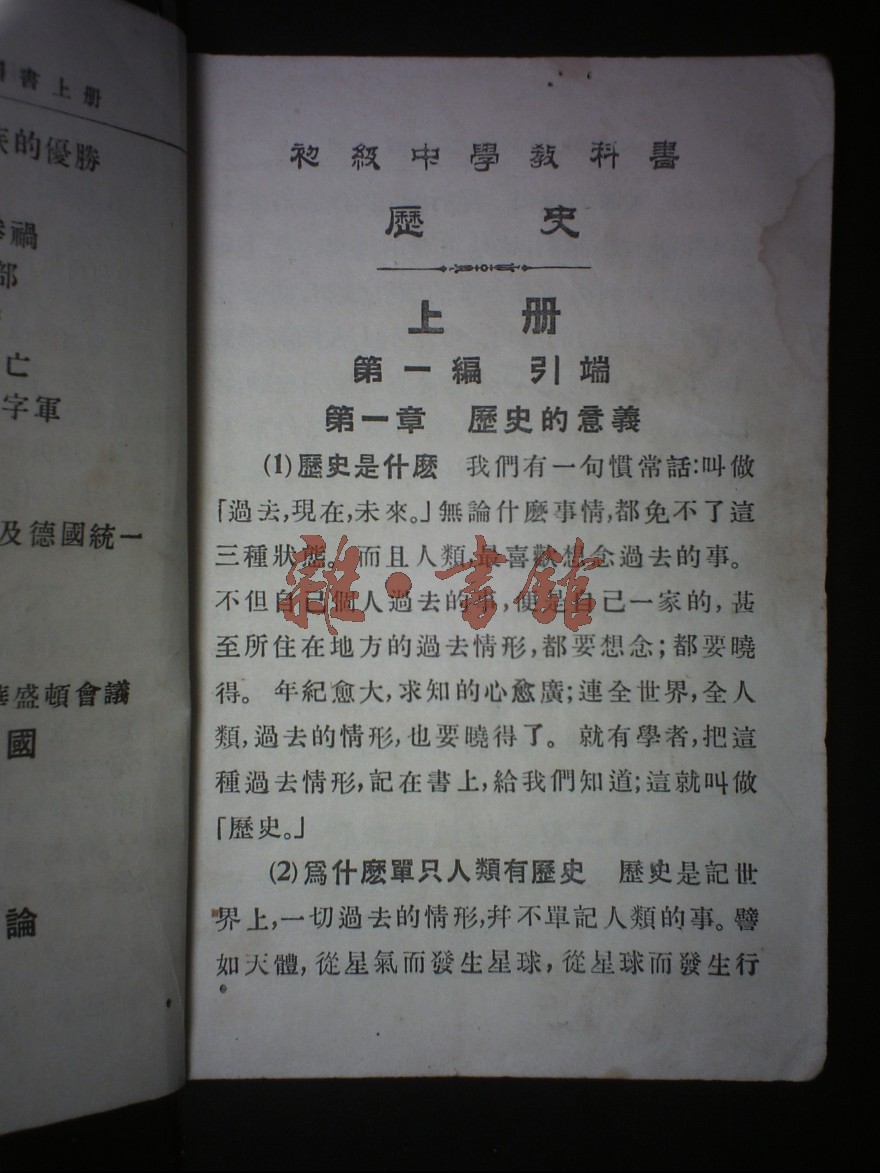 書上册
族的優勝
禍
部
亡
字軍
及德國統一
華盛頓會議
國
論
初級中學教科書
歷史
上册
第一編 引端
第一章 歷史的意義
(1)歷史是什麽 我們有一句慣常話:叫做
「過去,現在,未來。」無論什麽事情,都免不了這
三種狀態。而且人類,最喜歡想念過去的事。
不但自己個人過去的事,便是自己一家的,甚
至所住在地方的過去情形,都要想念;都要曉
得。年紀愈大,求知的心愈廣;連全世界,全人
類,過去的情形,也要曉得了。就有學者,把這
種過去情形,記在書上,給我們知道;這就叫做
「歷史。」
(2)爲什麽單只人類有歷史 歷史是記世
界上,一切過去的情形,幷不單記人類的事。譬
如天體,從星氣而發生星球,從星球而發生行
雜·書館